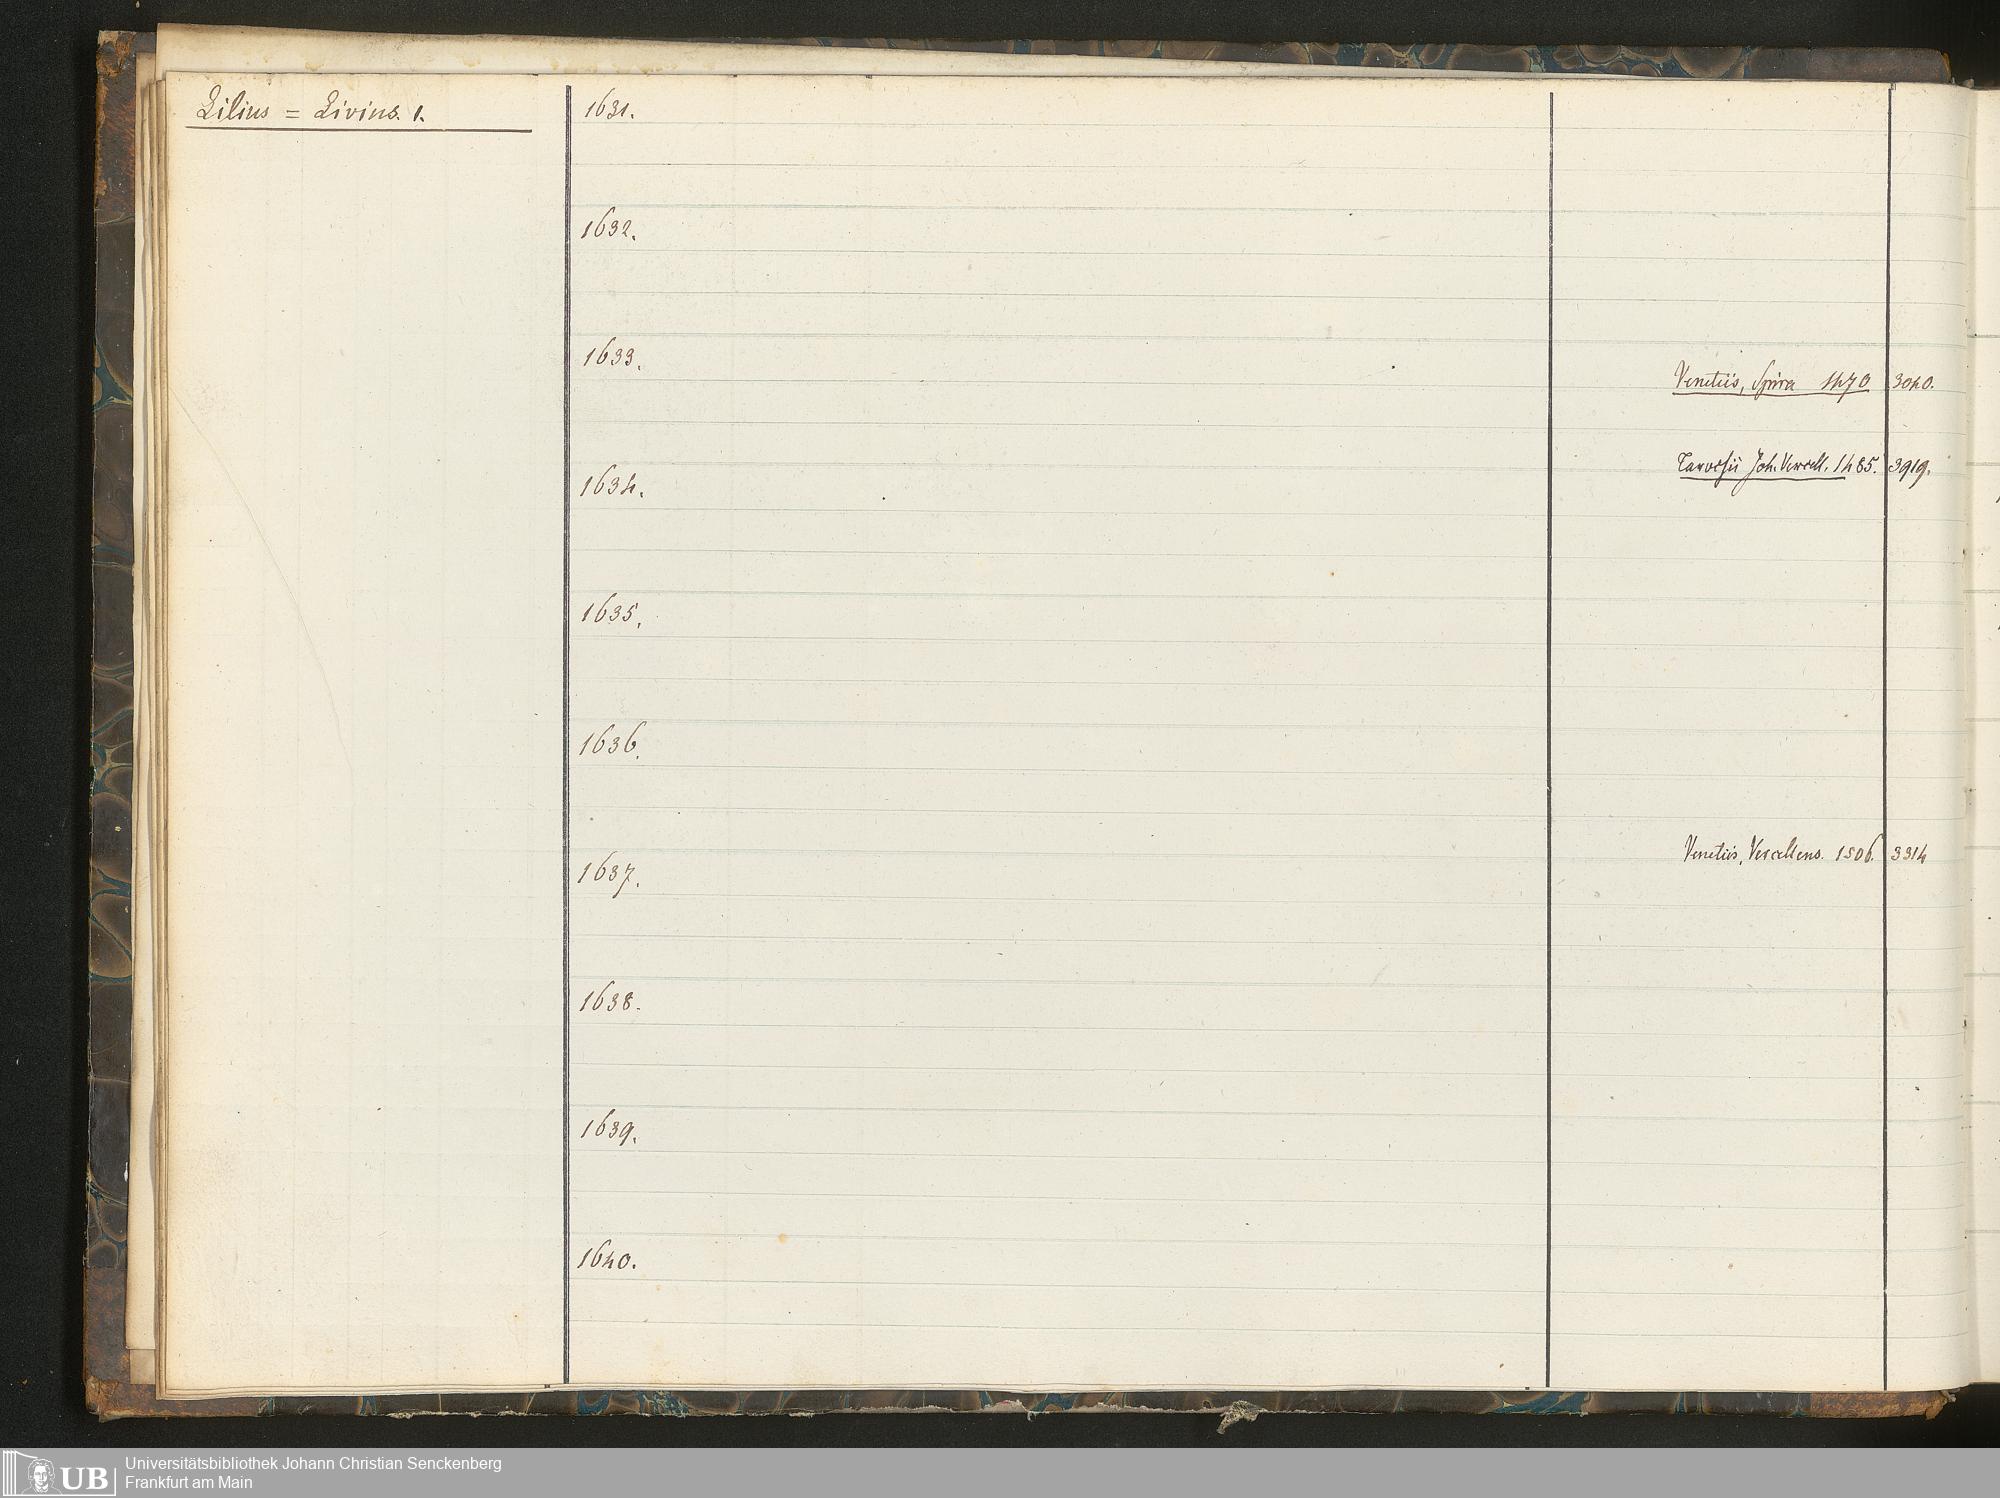 Lilius = Livius. 1.
1631.
1632.
1633.
Venetiis, Spira 1470 3040.
Tarvisii Joh. Vercell. 1485. 3919.
1634.
1635.
1636.
Venetiis, Vercellens. 1506. 3314
1637.
1638.
1639.
1640.
UB
Universitätsbibliothek Johann Christian Senckenberg
Frankfurt am Main